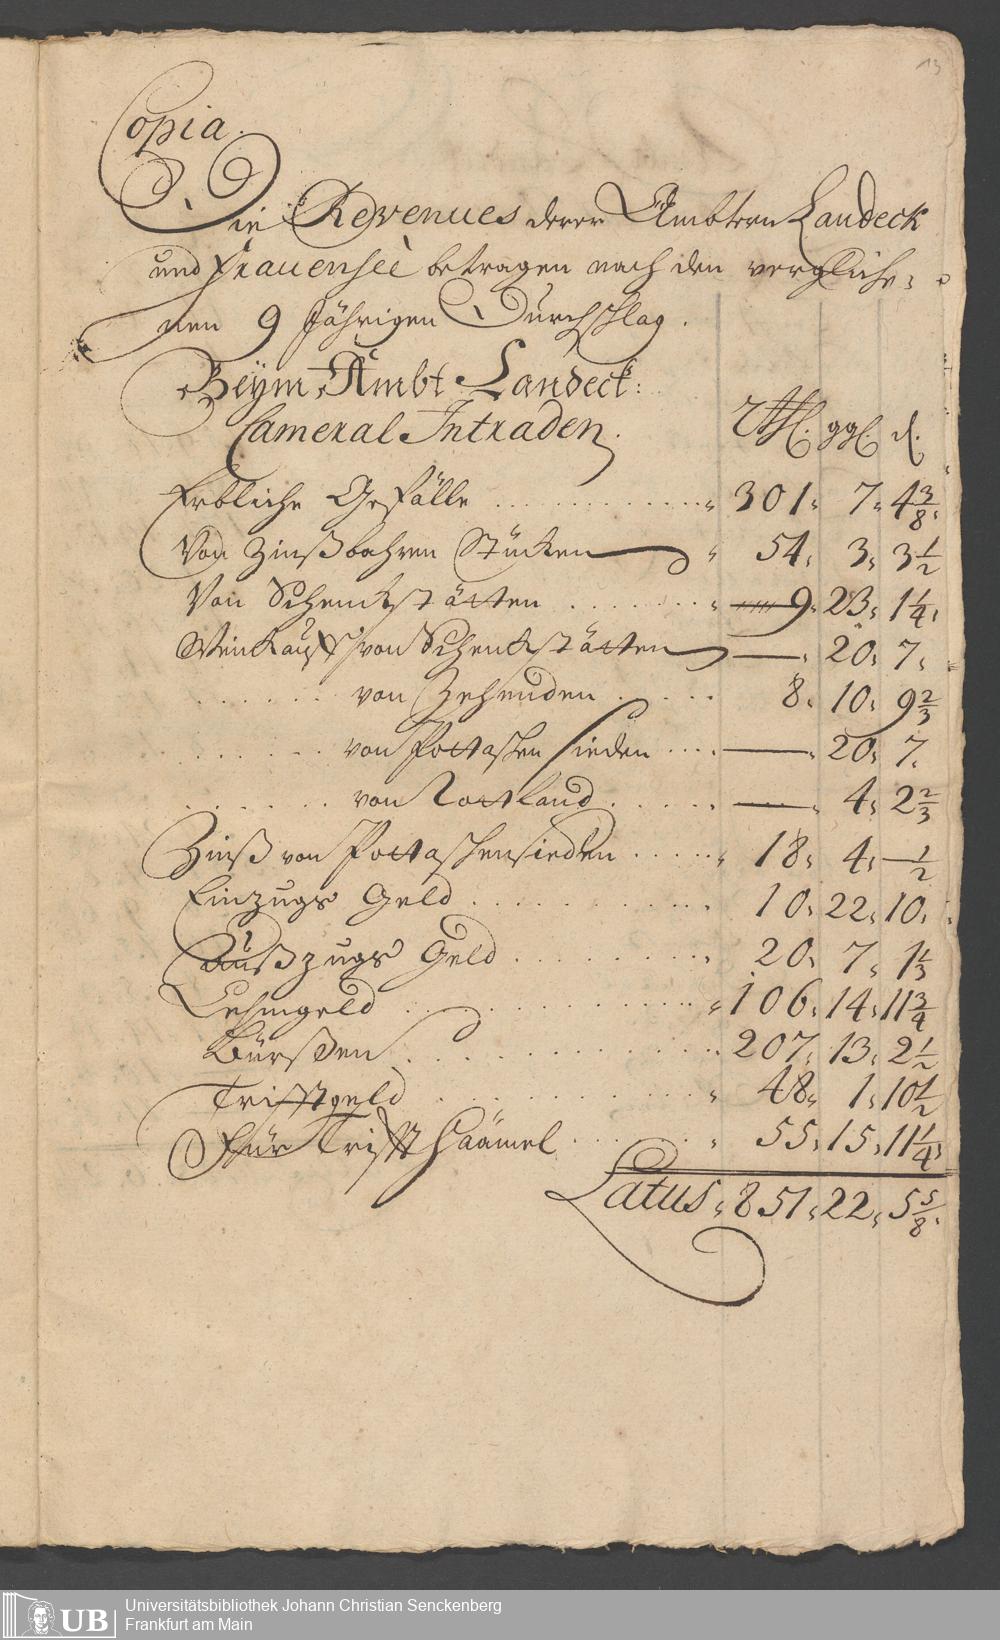 13
Copia.
Die Revenues derer Ämbtern Landeck
und Frauenseè betragen nach den vergliche,
nen 9 Jährigen Durchschlag.
Beÿm Ambt Landeck:
Cameral Intraden. Rthl. ggl. d.
Erbliche Gefälle . . . . . . . . . . 301. 7. 4 3/8.
Von Zinßbahren Stücken 54. 3. 3 1/2
Von Schenckstätten . . . . . . . 9. 23. 1 1/4.
Weinkauff von Schenckstätten — . 20. 7.
. . . . . . von Zehenden . . . . . 8. 10. 9 2/3
. . . . . . von Pottaschen sieden . . . . — . 20. 7.
. . . . . . von Rottland . . . . . — . 4. 2 2/3
Zinß von Pottaschensieden . . . . . 18. 4. — 1/2
Einzugs Geld . . . . . . . . . . 10. 22. 10.
Außzugs Geld . . . . . . . . . 20. 7. 1 1/3
Lehngeld . . . . . . . . . . . 106. 14. 11 3/4
Bürßen . . . . . . . . . . . 207. 13. 2 1/2
Trifftgeld . . . . . . . . . . 48. 1. 10 1/2
Für Trifft Häämel . . . . . . 55. 15. 11 1/4.
Latus. 851. 22. 5 5/8.
UB Universitätsbibliothek Johann Christian Senckenberg
Frankfurt am Main